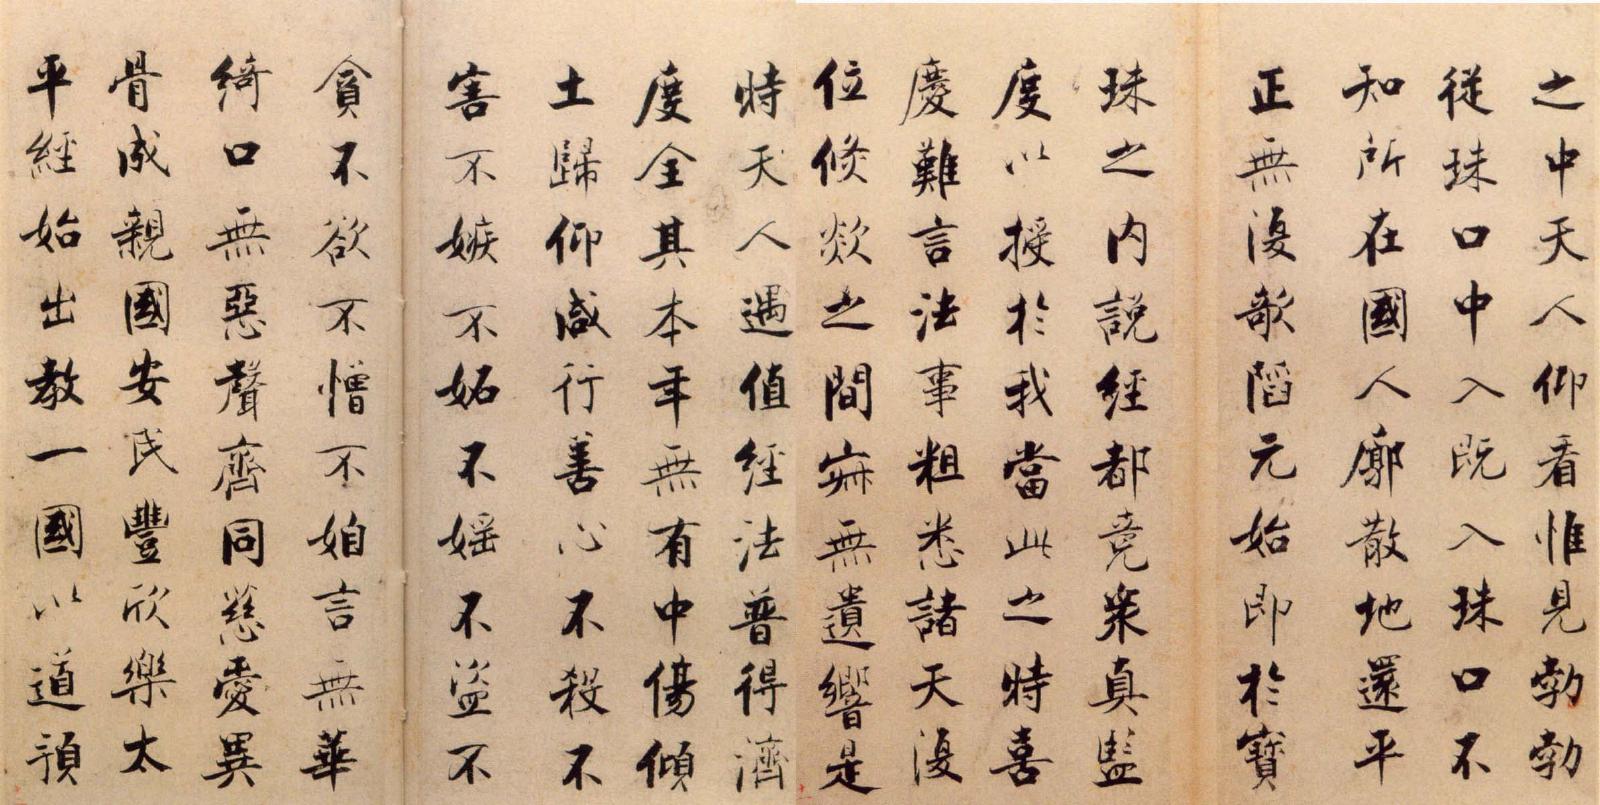 之中天人仰看惟見勃勃
從珠口中入既入珠口不
知所在國人廓散地還平
正無復欹陷元始即於寶
珠之内説經都竟衆真監
度以授於我當此之時喜
慶難言法事粗悉諸天復
位倏欻之間寂無遺響是
時天人遇值經法普得濟
度全其本年無有中傷傾
土歸仰咸行善心不殺不
害不嫉不妬不婬不盜不
貪不欲不憎不㛼言無華
綺口無惡聲齊同慈愛異
骨成親國安民豐欣樂太
平經始出教一國以道預